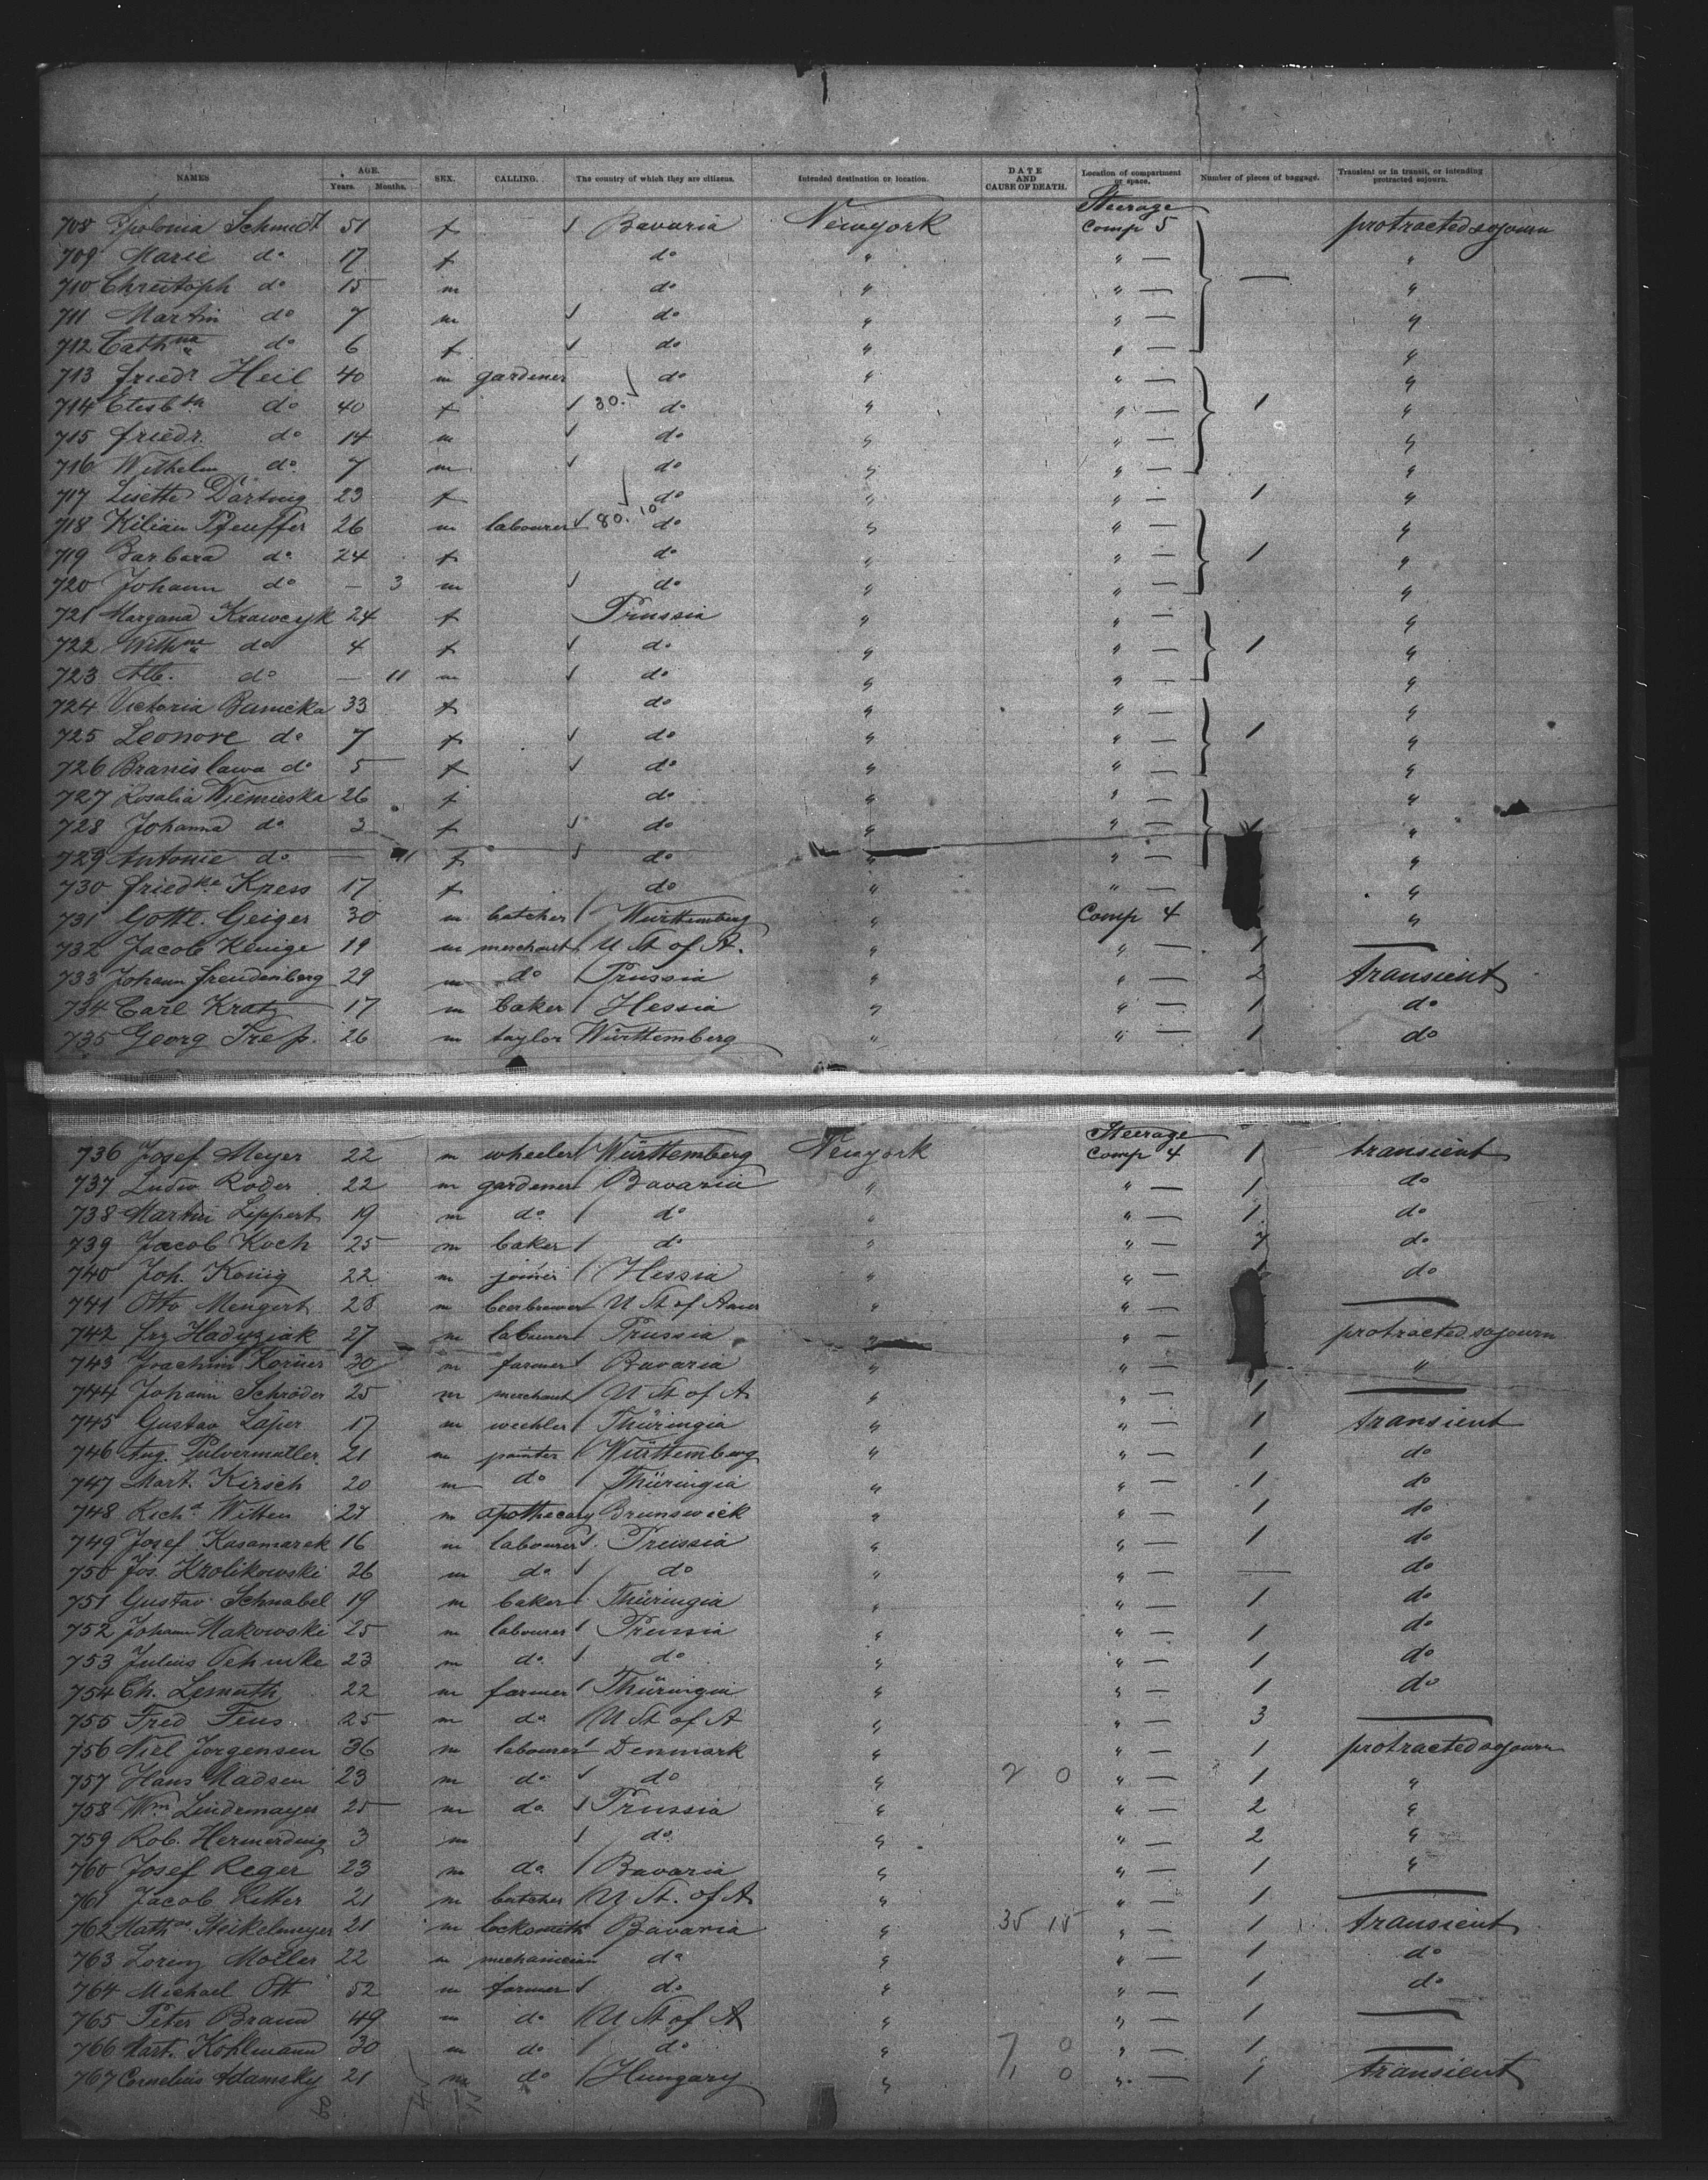 NAMES AGE. Years. Months. SEX. CALLING. The country of which they are citizens. Intended destination or location. DATE AND CAUSE OF DEATH. Location of compartment or space. Number of pieces of baggage. Transient or in transit, or intending protracted sojourn.
708 Apolonia Schmidt 51 f Bavaria Newyork Steerage Comp 5 protracted sojourn
709 Marie do 17 f do " " — "
710 Christoph do 15 m do " " — — "
711 Martin do 7 m do " " — "
712 Cathna do 6 f do " " — "
713 Friedr Heil 40 m gardener do " " — "
714 Elisbth do 40 f 30. do " " — 1 "
715 Friedr. do 14 m do " " — "
716 Wilhelm do 7 m do " " — "
717 Lisette 23 f do " " — 1 "
718 Kilian Pfeuffer 26 m labourer 80. 10 do " " — "
719 Barbara do 24 f do " " — 1 "
720 Johann do — 3 m do " " — "
721 Krawcyk 24 f Prussia " " — "
722 Wilhne do 4 f do " " — 1 "
723 Alb. do — 11 m do " " — "
724 Victoria Banicka 33 f do " " — "
725 Leonore do 7 f do " " — 1 "
726 Branislawa do 5 f do " " — "
727 Rosalia Wiemieska 26 f do " " — "
728 Johanna do 3 f do " " — "
729 Antonie do — 11 f do " " — "
730 Friedke Kress 17 f do " " — "
731 Gottl. Geiger 30 m butcher Württemberg " Comp 4 "
732 Jacob 19 m merchant U St of A. " " — 1 —
733 Johann Freudenberg 29 m do Prussia " " — 2 transient
734 Carl Kratz 17 m baker Hessia " " — 1 do
735 Georg 26 m taylor Württemberg " " — 1 do
736 Josef Meyer 22 m wheeler Württemberg Newyork Steerage Comp 4 1 transient
737 Ludw Roder 22 m gardener Bavaria " " — 1 do
738 Martin Lippert 19 m do do " " — 1 do
739 Jacob Koch 25 m baker do " " — do
740 Joh. König 22 m joiner Hessia " " — do
741 Otto Mengert 28 m beerbrewer U St of Amer " " — —
742 Frz Hadyziak 27 m labourer Prussia " " — protracted sojourn
743 Joachim Körner 30 m farmer Bavaria " " — "
744 Johann Schröder 25 m merchant U St of A " " — 1 —
745 Gustav 17 m weehler Thüringia " " — 1 transient
746 Aug. Pulvermüller 21 m painter Württemberg " " — 1 do
747 Mart. Kirsch 20 m do Thüringia " " — 1 do
748 Richd Witten 27 m apothecary Brunswick " " — 1 do
749 Josef Kasamarek 16 m labourer Prussia " " — 1 do
750 Jos. Krolikowski 26 m do do " " — — do
751 Gustav Schnabel 19 m baker Thüringia " " — 1 do
752 Johann Makowski 25 m labourer Prussia " " — 1 do
753 Julius 23 m do do " " — 1 do
754 Ch. Lemuth 22 m farmer Thüringia " " — 1 do
755 Fred Feus 25 m do U St of A " " — 3 —
756 Niel Jorgensen 36 m labourer Denmark " " — 1 protracted sojourn
757 Hans Madsen 23 m do do " 2 0 " — 1 "
758 Wm Lindemayer 25 m do Prussia " " — 2 "
759 Rob. Hermerding 3 m do " " — 2 "
760 Josef Reger 23 m do Bavaria " " — 1 "
761 Jacob Ritter 21 m butcher U St. of A " " — 1 —
762 Mathas Steikelmeyer 21 m locksmith Bavaria " 35 15 " — 1 transient
763 Lorenz Möller 22 m mechanician do " " — 1 do
764 Michael Ott 52 m farmer do " " — 1 do
765 Peter Braun 49 m do U St of A " " — 1 —
766 Mart. Kohlmann 30 m do do " 7 0 " — 1 —
767 Cornelius Adamsky 21 m do Hungary " 0 " — 1 transient